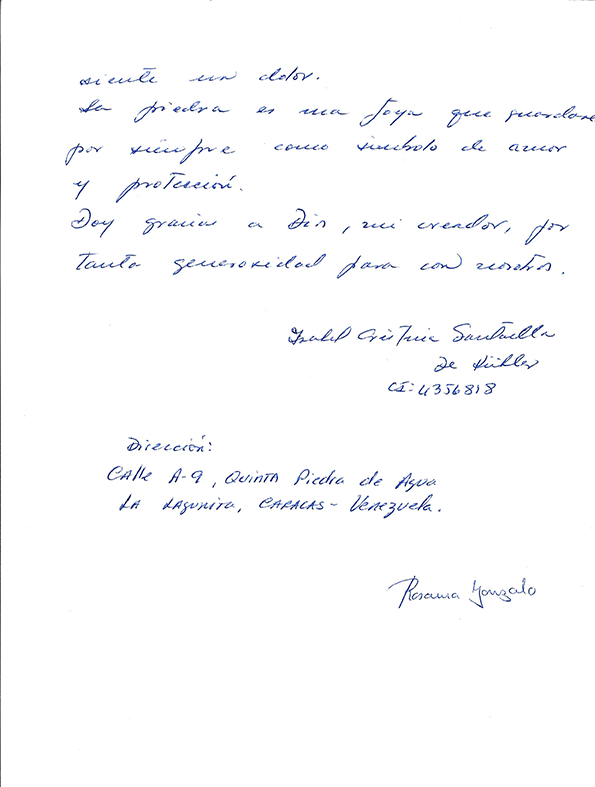 siente un dolor.
La piedra es una joya que guardaré
por siempre como símbolo de amor
y protección.
Doy gracias a Dios, mi creador, por
tanta generosidad para con nosotros.
Isabel Cristina Santaella
de
CI: 4356818
Dirección:
Calle A-9, Quinta Piedra de Agua
La Lagunita, Caracas - Venezuela.
Rosanna Gonzalo